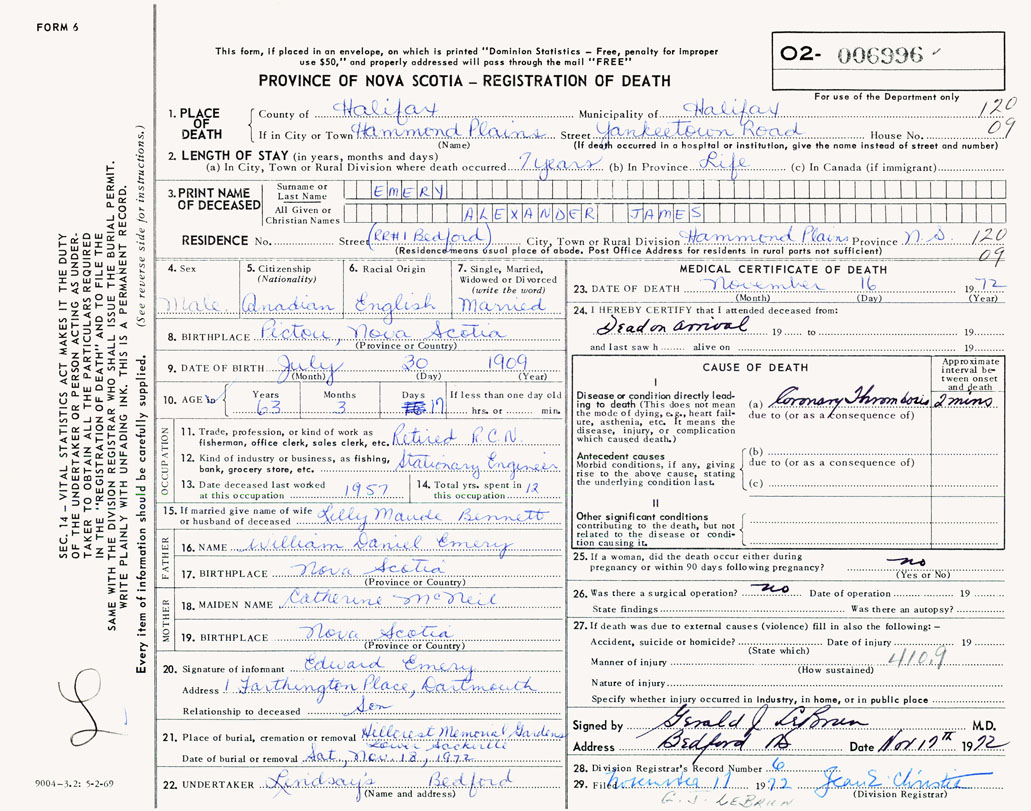 FORM 6
This form, if placed in an envelope, on which is printed "Dominion Statistics – Free, penalty for improper
use $50," and properly addressed will pass through the mail "FREE"
PROVINCE OF NOVA SCOTIA – REGISTRATION OF DEATH
O2- 006996
For use of the Department only
1. PLACE OF DEATH
County of Halifax Municipality of Halifax 120
If in City or Town Hammond Plains Street Yankeetown Road House No. 09
(Name) (If death occurred in a hospital or institution, give the name instead of street and number)
2. LENGTH OF STAY (in years, months and days)
(a) In City, Town or Rural Division where death occurred 7 years (b) In Province Life (c) In Canada (if immigrant)
3. PRINT NAME OF DECEASED
Surname or Last Name EMERY
All Given or Christian Names ALEXANDER JAMES
RESIDENCE No. Street (RR#1 Bedford) City, Town or Rural Division Hammond Plains Province N.S. 120
(Residence means usual place of abode. Post Office Address for residents in rural parts not sufficient) 09
4. Sex
Male
5. Citizenship
(Nationality)
Canadian
6. Racial Origin
English
7. Single, Married,
Widowed or Divorced
(write the word)
Married
8. BIRTHPLACE Pictou, Nova Scotia
(Province or Country)
9. DATE OF BIRTH July 30 1909
(Month) (Day) (Year)
10. AGE
Years Months Days If less than one day old
63 3 17 hrs. or min.
OCCUPATION
11. Trade, profession or kind of work as
fisherman, office clerk, sales clerk, etc. Retired R.C.N.
12. Kind of industry or business, as fishing,
bank, grocery store, etc. Stationary Engineer
13. Date deceased last worked
at this occupation 1957
14. Total yrs. spent in
this occupation 12
15. If married give name of wife
or husband of deceased Lilly Maude Bennett
FATHER
16. NAME William Daniel Emery
17. BIRTHPLACE Nova Scotia
(Province or Country)
MOTHER
18. MAIDEN NAME Catherine McNeil
19. BIRTHPLACE Nova Scotia
(Province or Country)
20. Signature of informant Edward Emery
Address 1 Farthington Place, Dartmouth
Relationship to deceased Son
21. Place of burial, cremation or removal Hillcrest Memorial Gardens
Lower Sackville
Date of burial or removal Sat, Nov. 18, 1972
22. UNDERTAKER Lindsay's Bedford
(Name and address)
MEDICAL CERTIFICATE OF DEATH
23. DATE OF DEATH November 16 1972
(Month) (Day) (Year)
24. I HEREBY CERTIFY that I attended deceased from:
Dead on arrival 19 to 19
and last saw h alive on 19
CAUSE OF DEATH
Approximate
interval be-
tween onset
and death
I
Disease or condition directly lead-
ing to death (This does not mean
the mode of dying, e.g., heart fail-
ure, asthenia, etc. It means the
disease, injury, or complication
which caused death.)
(a) Coronary Thrombosis 2 mins
due to (or as a consequence of)
Antecedent causes
Morbid conditions, if any, giving
rise to the above cause, stating
the underlying condition last.
(b)
due to (or as a consequence of)
(c)
II
Other significant conditions
contributing to the death, but not
related to the disease or condi-
tion causing it.
25. If a woman, did the death occur either during
pregnancy or within 90 days following pregnancy? no
(Yes or No)
26. Was there a surgical operation? no Date of operation 19
State findings Was there an autopsy?
27. If death was due to external causes (violence) fill in also the following: –
Accident, suicide or homicide? Date of injury 19
(State which)
Manner of injury 410.9
(How sustained)
Nature of injury
Specify whether injury occurred in industry, in home, or in public place
Signed by Gerald J LeBrun M.D.
Address Bedford NS Date Nov 17th 1972
28. Division Registrar's Record Number 6
29. Filed November 17 1972 Jean E. Christie
(Division Registrar)
G. J. LEBRUN
SEC. 14 – VITAL STATISTICS ACT MAKES IT THE DUTY
OF THE UNDERTAKER OR PERSON ACTING AS UNDER-
TAKER TO OBTAIN ALL THE PARTICULARS REQUIRED
IN THE "REGISTRATION OF DEATH" AND TO FILE THE
SAME WITH THE DIVISION REGISTRAR WHO SHALL ISSUE THE BURIAL PERMIT.
WRITE PLAINLY WITH UNFADING INK. THIS IS A PERMANENT RECORD.
Every item of information should be carefully supplied. (See reverse side for instructions.)
9004-3.2: 5-2-69